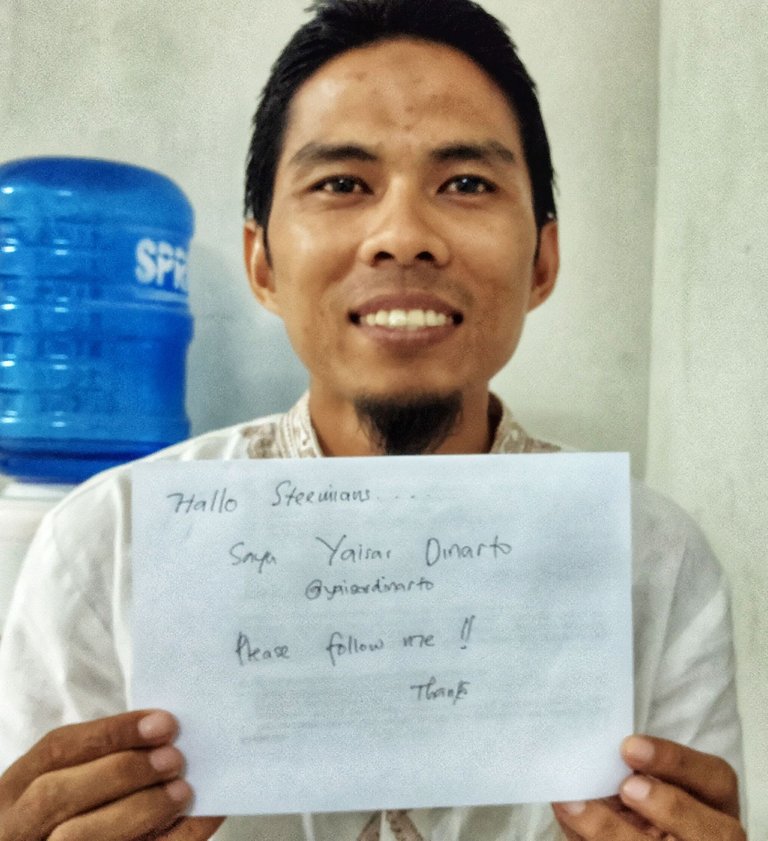 SPR
Hallo Steemians....
Saya Yaisar Dinarto
@yaisardinarto
Please follow me !!
Thanks